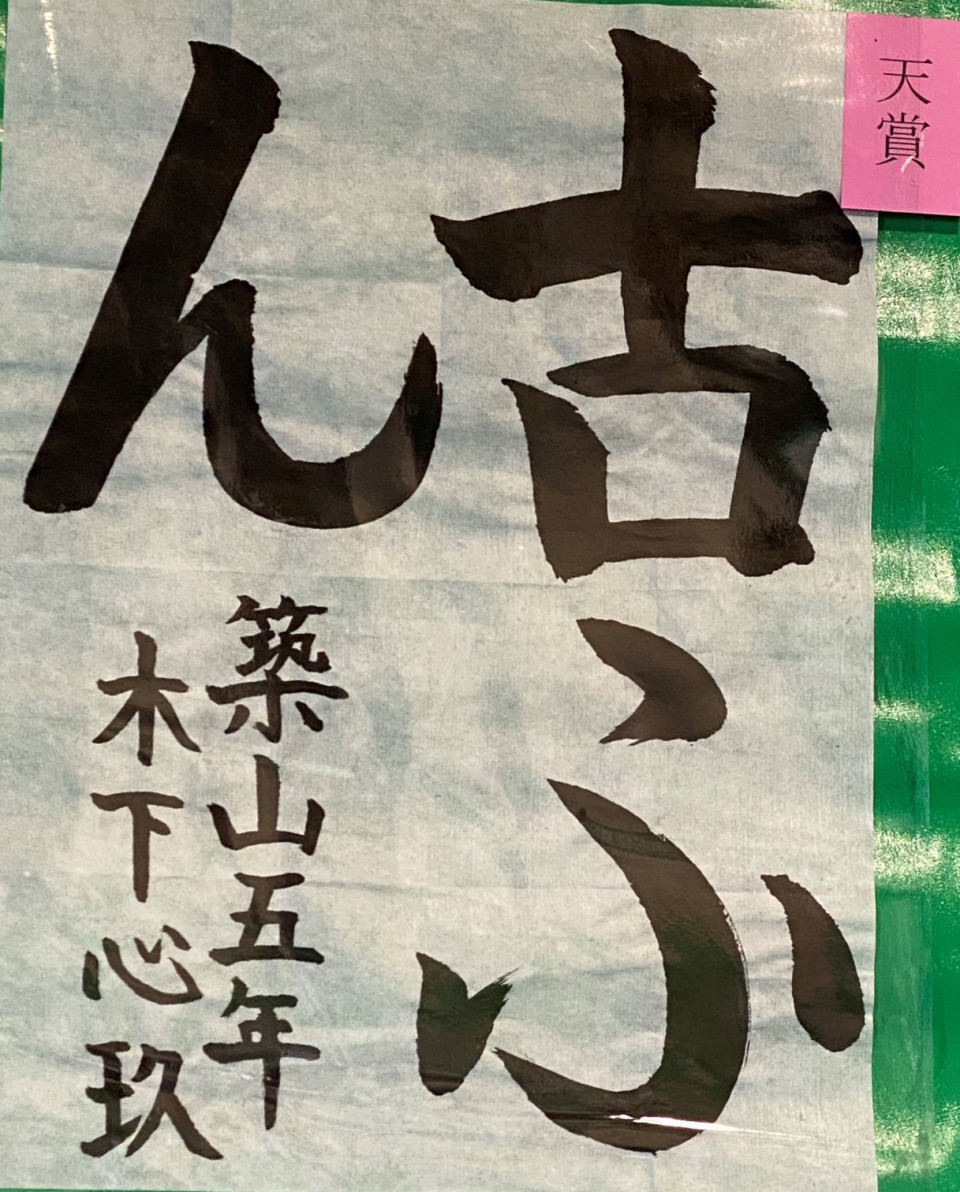 天賞
古ふ
ん
築山五年
木下心玖